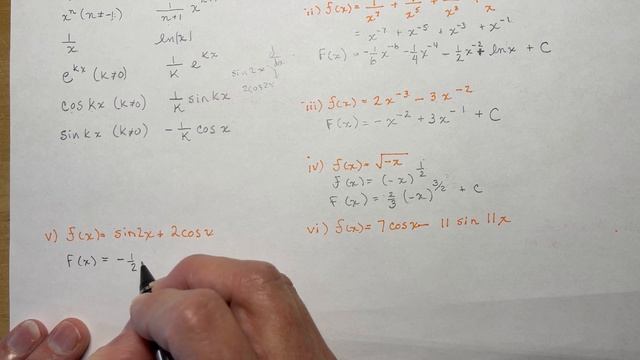 xⁿ (n≠-1)
1/(n+1) xⁿ⁺¹
1/x
ln|x|
e^{kx} (k≠0)
1/k e^{kx}
cos kx (k≠0)
1/k sin kx
sin kx (k≠0)
-1/k cos x
sin 2x
2cos 2x
ii) f(x) = 1/x⁷ + 1/x⁵ + 1/x³ + 1/x
= x⁻⁷ + x⁻⁵ + x⁻³ + x⁻¹
F(x) = -1/6 x⁻⁶ - 1/4 x⁻⁴ - 1/2 x⁻² + ln x + C
iii) f(x) = 2x⁻³ - 3x⁻²
F(x) = -x⁻² + 3x⁻¹ + C
iv) f(x) = √-x
f(x) = (-x)^{1/2}
F(x) = 2/3 (-x)^{3/2} + C
v) f(x) = sin2x + 2cosx
F(x) = -1/2
vi) f(x) = 7cosx - 11 sin 11x